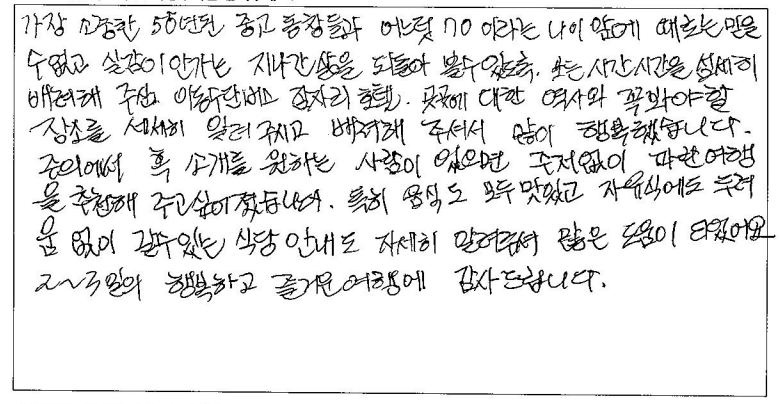 가장 소중한 50년된 중고 동창들과 어느덧 70 이라는 나이 앞에 때로는 믿을
수없고 실감이 안가는 지나간 삶을 되돌아 볼수 있도록. 모든 시간시간을 섬세히
배려해 주심 이동수단버스 잠자리 호텔. 곳곳에 대한 역사와 꼭봐야할
장소를 세세히 일러 주시고 배려해 주셔서 많이 행복했습니다.
주의에서 혹 소개를 원하는 사람이 있으면 주저없이 파란여행
을 추천해 주고싶어졌습니다. 특히 음식도 모두 맛있고 자유식에도 두려
움 없이 갈수있는 식당 안내도 자세히 알려줘서 많은 도움이 되었어요
2~3일의 행복하고 즐거운여행에 감사드립니다.